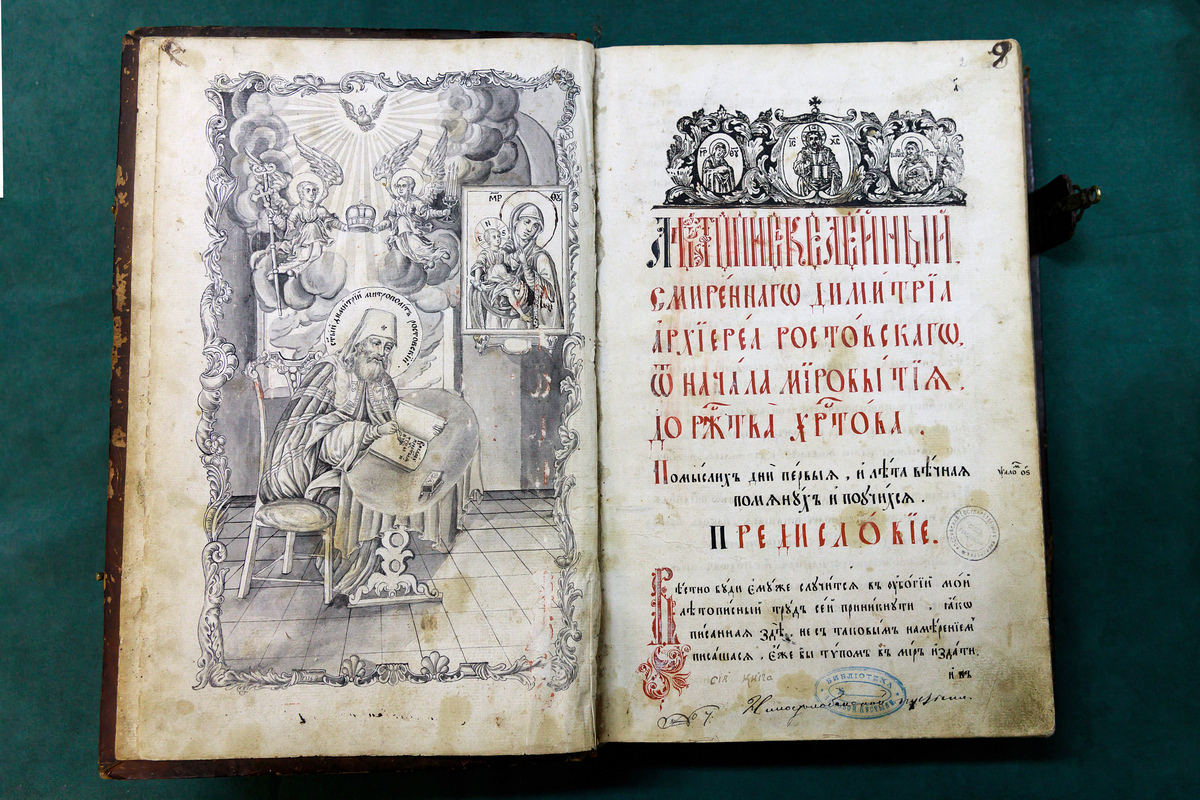 МР ѲУ
с҃тый димитрїй митрополитъ ростовскїй
ІС ХС
МР ѲУ
Лѣтописе келейный
смире́ннагѡ дими́трїа
архїере́а росто́вскагѡ,
ѿ нача́ла мїробы́тїѧ .
до рж҃тва̀ хрт҃о́ва .
Помыслихъ дни̑ пе́рвыѧ , и҆ лѣ́та вѣ́чнаѧ
помѧнꙋ́хъ и҆ поꙋчи́хсѧ .
ѱало́м о҃ѕ
Предисло́вїе.
Вѣ́стно бꙋди є҆мꙋ́же слꙋчи́тсѧ въ оу҆бо́гїй мо́й
лѣтопи́сный трꙋ́дъ се́й прини́кнꙋти . ꙗ҆́кѡ
пи́саннаѧ здѣ̀, не съ таковы́мъ намѣ́ренїем
писа́шасѧ , є҆́же бы тѵпом въ мі́ръ и҆зда́ти,
и҆ въ
сія книга
БИБЛІОТЕКА